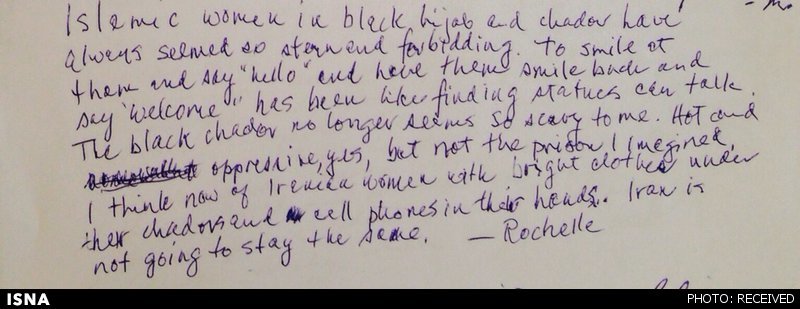 - m.
Islamic women in black hijab and chador have
always seemed so stern and forbidding. To smile at
them and say "hello" and have them smile back and
say "welcome" has been like finding statues can talk.
The black chador no longer seems so scary to me. Hot and
oppressive, yes, but not the prison I imagined.
I think now of Iranian women with bright clothes under
their chadors and cell phones in their hands. Iran is
not going to stay the same. — Rochelle
ISNA
PHOTO: RECEIVED